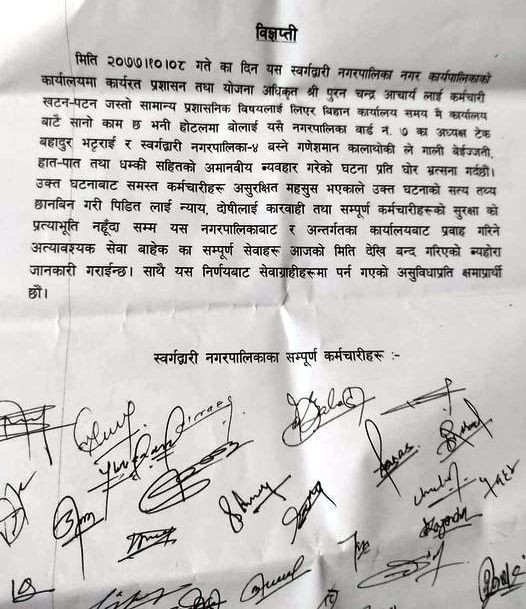 विज्ञप्ती
मिति २०७७।१०।०८ गते का दिन यस स्वर्गद्वारी नगरपालिका नगर कार्यपालिकाको
कार्यालयमा कार्यरत प्रशासन तथा योजना अधिकृत श्री पुरन चन्द्र आचार्य लाई कर्मचारी
खटन-पटन जस्तो सामान्य प्रशासनिक विषयलाई लिएर बिहान कार्यालय समय मै कार्यालय
बाटै सानो काम छ भनी होटलमा बोलाई यसै नगरपालिका वार्ड नं. ७ का अध्यक्ष टेक
बहादुर भट्टराई र स्वर्गद्वारी नगरपालिका-४ बस्ने गणेशमान कालाथोकी ले गाली बेईज्जती,
हात-पात तथा धम्की सहितको अमानवीय व्यवहार गरेको घटना प्रति घोर भ्रत्सना गर्दछौ।
उक्त घटनाबाट समस्त कर्मचारीहरू असुरक्षित महसुस भएकाले उक्त घटनाको सत्य तथ्य
छानबिन गरी पिडित लाई न्याय, दोषीलाई कारवाही तथा सम्पूर्ण कर्मचारीहरूको सुरक्षा को
प्रत्याभूति नहूँदा सम्म यस नगरपालिकाबाट र अन्तर्गतका कार्यालयबाट प्रवाह गरिने
अत्यावश्यक सेवा बाहेक का सम्पूर्ण सेवाहरू आजको मिति देखि बन्द गरिएको ब्यहोरा
जानकारी गराईन्छ। साथै यस निर्णयबाट सेवाग्राहीहरूमा पर्न गएको असुविधाप्रति क्षमाप्रार्थी
छौं।
स्वर्गद्वारी नगरपालिकाका सम्पूर्ण कर्मचारीहरू :-